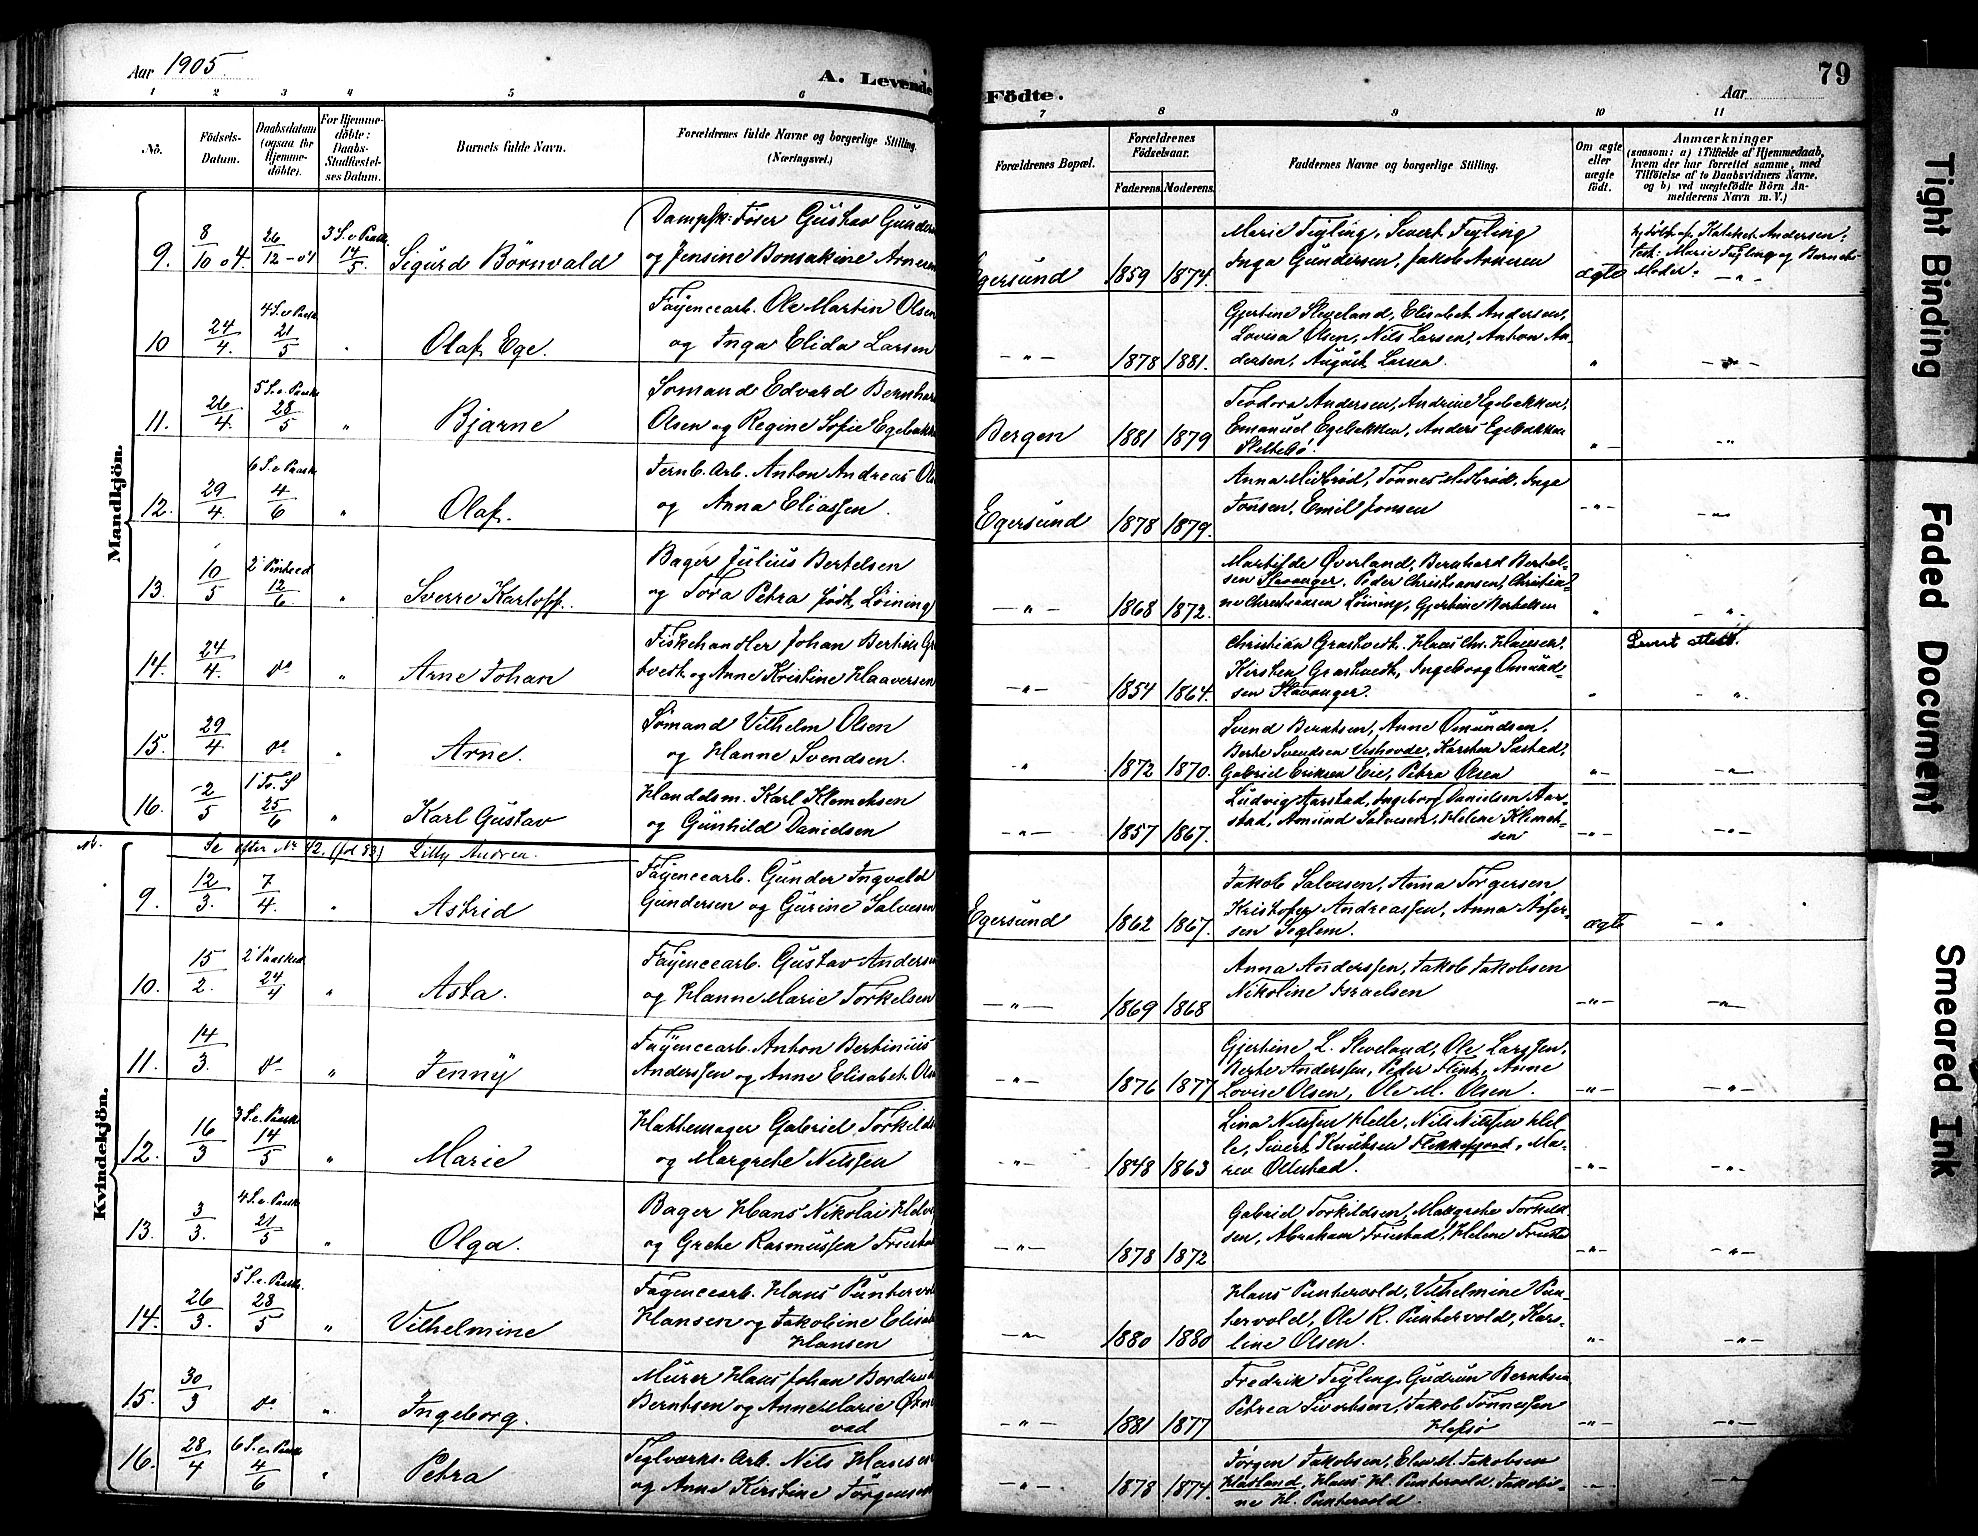 Aar 1905.
A. Levende
Födte.
Aar
79
1 2 3 4 5 6 7 8 9 10 11
No.
Födsels-Datum.
Daabsdatum (ogsaa for Hjemme-döbte).
For Hjemme-döbte: Daabs-Stadfæstel-ses Datum.
Barnets fulde Navn.
Forældrenes fulde Navne og borgerlige Stilling. (Næringsvei.)
Forældrenes Bopæl.
Forældrenes Födselsaar.
Faderens. Moderens.
Faddernes Navne og borgerlige Stilling.
Om ægte eller uægte födt.
Anmærkninger
(saasom: a) i Tilfælde af Hjemmedaab, hvem der har forrettet samme, med Tilföielse af to Daabsvidners Navne, og b) ved uægtefödte Börn Anmelderens Navn m. V.)
Mandkjön.
9. 8/10 04. 26/12-04 3 S. e. Paaske 14/5. Sigurd Börnvald
Dampsk: Föser Gustav Gunders
og Jensine Bonsakine Arnesen
Egersund 1859 1874.
Marie Tegling, Sivert Tegling
Inga Gundersen, Jakob Arnesen
ægte
Hj. döbt af Kateket Andersen:
Test: Marie Tegling og Barnets
Moder.
10 24/4. 4 S. e. Paaske 21/5 " Olaf Ege.
Fayencearb. Ole Martin Olsen
og Inga Elida Larsen
-"- 1878 1881.
Gjertine Sleveland, Elisabet Andersen,
Lovisa Olsen, Nils Larsen, Anton An-
dersen, August Larsen.
11. 26/4. 5 S. e. Paaske 28/5 " Bjarne
Sömand Edvard Bernhard
Olsen og Regine Sofie Egebakken
Bergen 1881 1879
Teodora Andersen, Andrine Egebakken,
Emanuel Egebakken, Anders Egebakken
Slettebö.
12. 29/4. 6 S. e. Paaske 4/6 " Olaf.
Jernb. Arb. Anton Andreas Ols
og Anna Eliassen.
Egersund 1878 1879.
Anna Midbröd, Tönnes Midbröd, Inge
Jonsen, Emil Jonsen
13. 10/5 2' Pintsed. 12/6. " Sverre Karloff.
Bager Julius Bertelsen
og Tora Petra födt Löining
-"- 1868 1872.
Martilde Överland, Bernhard Bertel-
sen Stavanger, Peder Christiansen, Christia-
ne Christiansen Löining, Gjertine Bertelsen
14. 24/4. do " Arne Johan
Fiskehandler Johan Bertin Gr
tvedt og Anne Kristine Haaversen
-"- 1854 1864.
Christian Grastvedt, Hans Chr. Hansen,
Kirsten Grastvedt, Ingeborg Omund-
sen Stavanger.
15. 29/4. do " Arne.
Sömand Vilhelm Olsen
og Hanne Svendsen.
" 1872 1870.
Svend Berntsen, Anne Omundsen,
Berte Svendsen Veshovde, Karsten Sæstad,
Gabriel Eriksen Eie, Petra Olsen
16. 2/5 1' Tr. S 25/6 " Karl Gustav
Handelsm. Karl Klemetsen
og Gunhild Danielsen
-"- 1857 1867.
Ludvig Aarstad, Ingeborg Danielsen Aar-
stad, Amund Salvesen, Helene Klemet-
sen
Nb. Se efter Nr 42. (fol 83) Lilly Andrea.
Kvindekjön.
9. 12/3. 7/4. " Astrid
Fayencearb. Gunder Ingvald
Gundersen og Gurine Salvesen
Egersund 1862 1867.
Jakob Salvesen, Anna Torgersen
Kristofer Andreassen, Anna Asser-
sen Seglem.
ægte
10. 15/2. 2' Paasked. 24/4 " Asta.
Fayencearb. Gustav Andersen
og Hanne Marie Torkelsen
-"- 1869 1868
Anna Anderssen, Jakob Jakobsen
Nikoline Israelsen
11. 14/3. do " Jenny
Fayencearb. Anton Bertinius
Anderssen og Anne Elisabet Ols
-"- 1876 1877
Gjertine L. Sleveland, Ole Larssen,
Berte Anderssen, Peder Flink, Anne
Lovise Olsen, Ole M. Olsen.
12. 16/3 3 S. e. Paaske 14/5 " Marie
Hattemager Gabriel Torkilds
og Margrethe Nilssen
-"- 1848 1863
Lina Nilssen Helle, Nils Nilssen Hel-
le, Sivert Knutsen Flekkefjord, Ma-
ren Ollestad.
13. 3/3. 4 S. e. Paaske 21/5 " Olga.
Bager Hans Nikolai Helv
og Grete Rasmussen Friestad
-"- 1878 1872
Gabriel Torkildsen, Margrethe Torkild-
sen, Abraham Friestad, Helene Friestad
14. 26/3. 5 S. e. Paaske 28/5 " Vilhelmine
Fayencearb. Hans Puntervold
Hansen og Jakobine Elisab
Hansen
-"- 1880 1880
Hans Puntervold, Vilhelmine Pun-
tervold, Ole R. Puntervold, Kars-
line Olsen.
15. 30/3 do " Ingeborg.
Murer Hans Johan Bordevik
Berntsen og Anne Marie Ökne
vad
-"- 1881 1877
Fredrik Tegling, Gudrun Berntsen
Petrea Sivertsen, Jakob Tönnessen
Hafsö
16. 28/4 6 S. e. Paaske 4/6 " Petra
Teglværks. Arb. Nils Hansen
og Anne Kirstine Törgensen
-"- 1878 1874.
Jörgen Jakobsen, Elen M. Jakobsen
Hadland, Hans H. Puntervold, Jakobi-
ne H. Puntervold.
Tight Binding
Faded Document
Smeared Ink